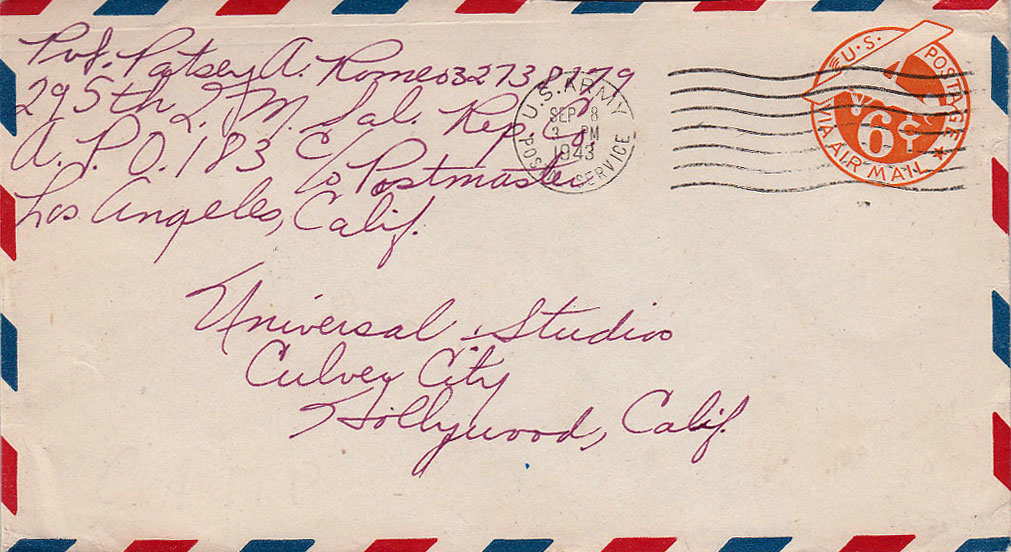 Pvt. Patsey A. Romeo 32738179
295th Q. M. Sal. Rep. Co.
A. P. O. 183 C/o Postmaster
Los Angeles, Calif.
U.S. ARMY
SEP 8
3 PM
1943
POSTAL SERVICE
U.S. POSTAGE
6¢
VIA AIR MAIL
Universal Studios
Culver City
Hollywood, Calif.